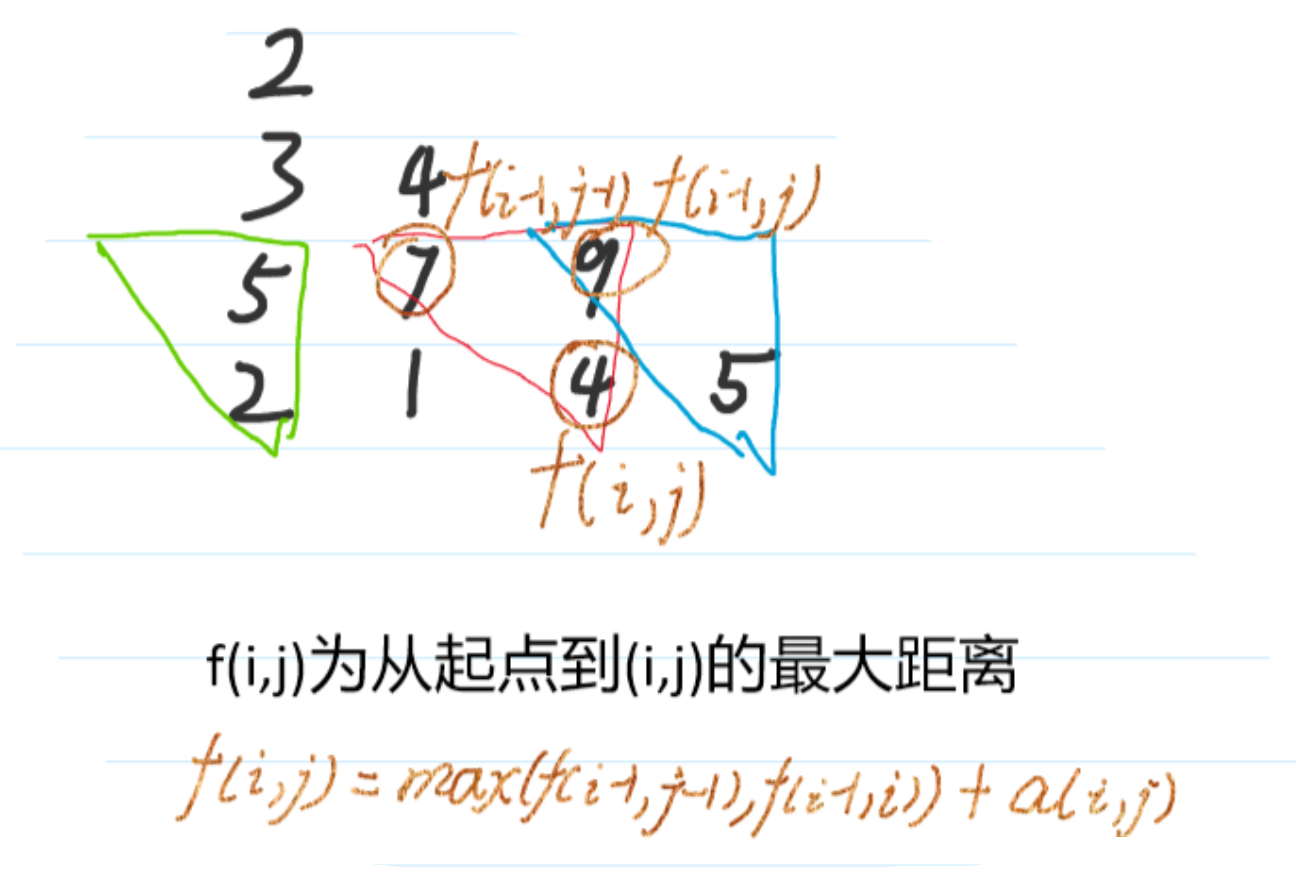 2
3 4 f(i-1,j-1) f(i-1,j)
5 7 9
2 1 4 5
f(i,j)
f(i,j)为从起点到(i,j)的最大距离
f(i,j)=max(f(i-1,j-1),f(i-1,i))+a(i,j)